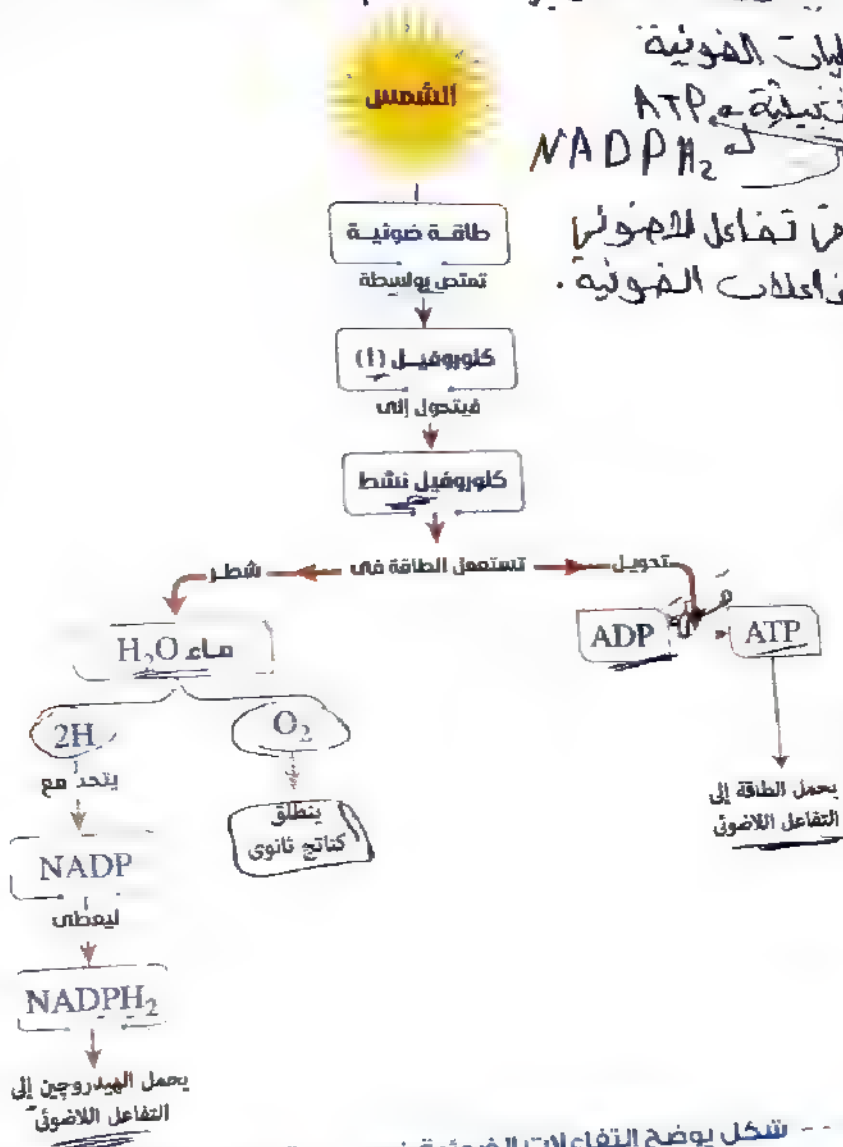 الضوئية
ATP
NADPH₂
تفاعل لاضوئي
الضوئية.
الشمس
طاقة ضوئية
تمتص بواسطة
كلوروفيل (أ)
فيتحول إلى
كلوروفيل نشط
شطر تستعمل الطاقة فى تحويل
ماء H₂O
ADP ATP
2H O₂
يتحد مع
ينطلق
كناتج ثانوى
يحمل الطاقة إلى
التفاعل اللاضوئى
NADP
ليعطى
NADPH₂
يحمل الهيدروچين إلى
التفاعل اللاضوئى
شكل يوضح التفاعلات الضوئية